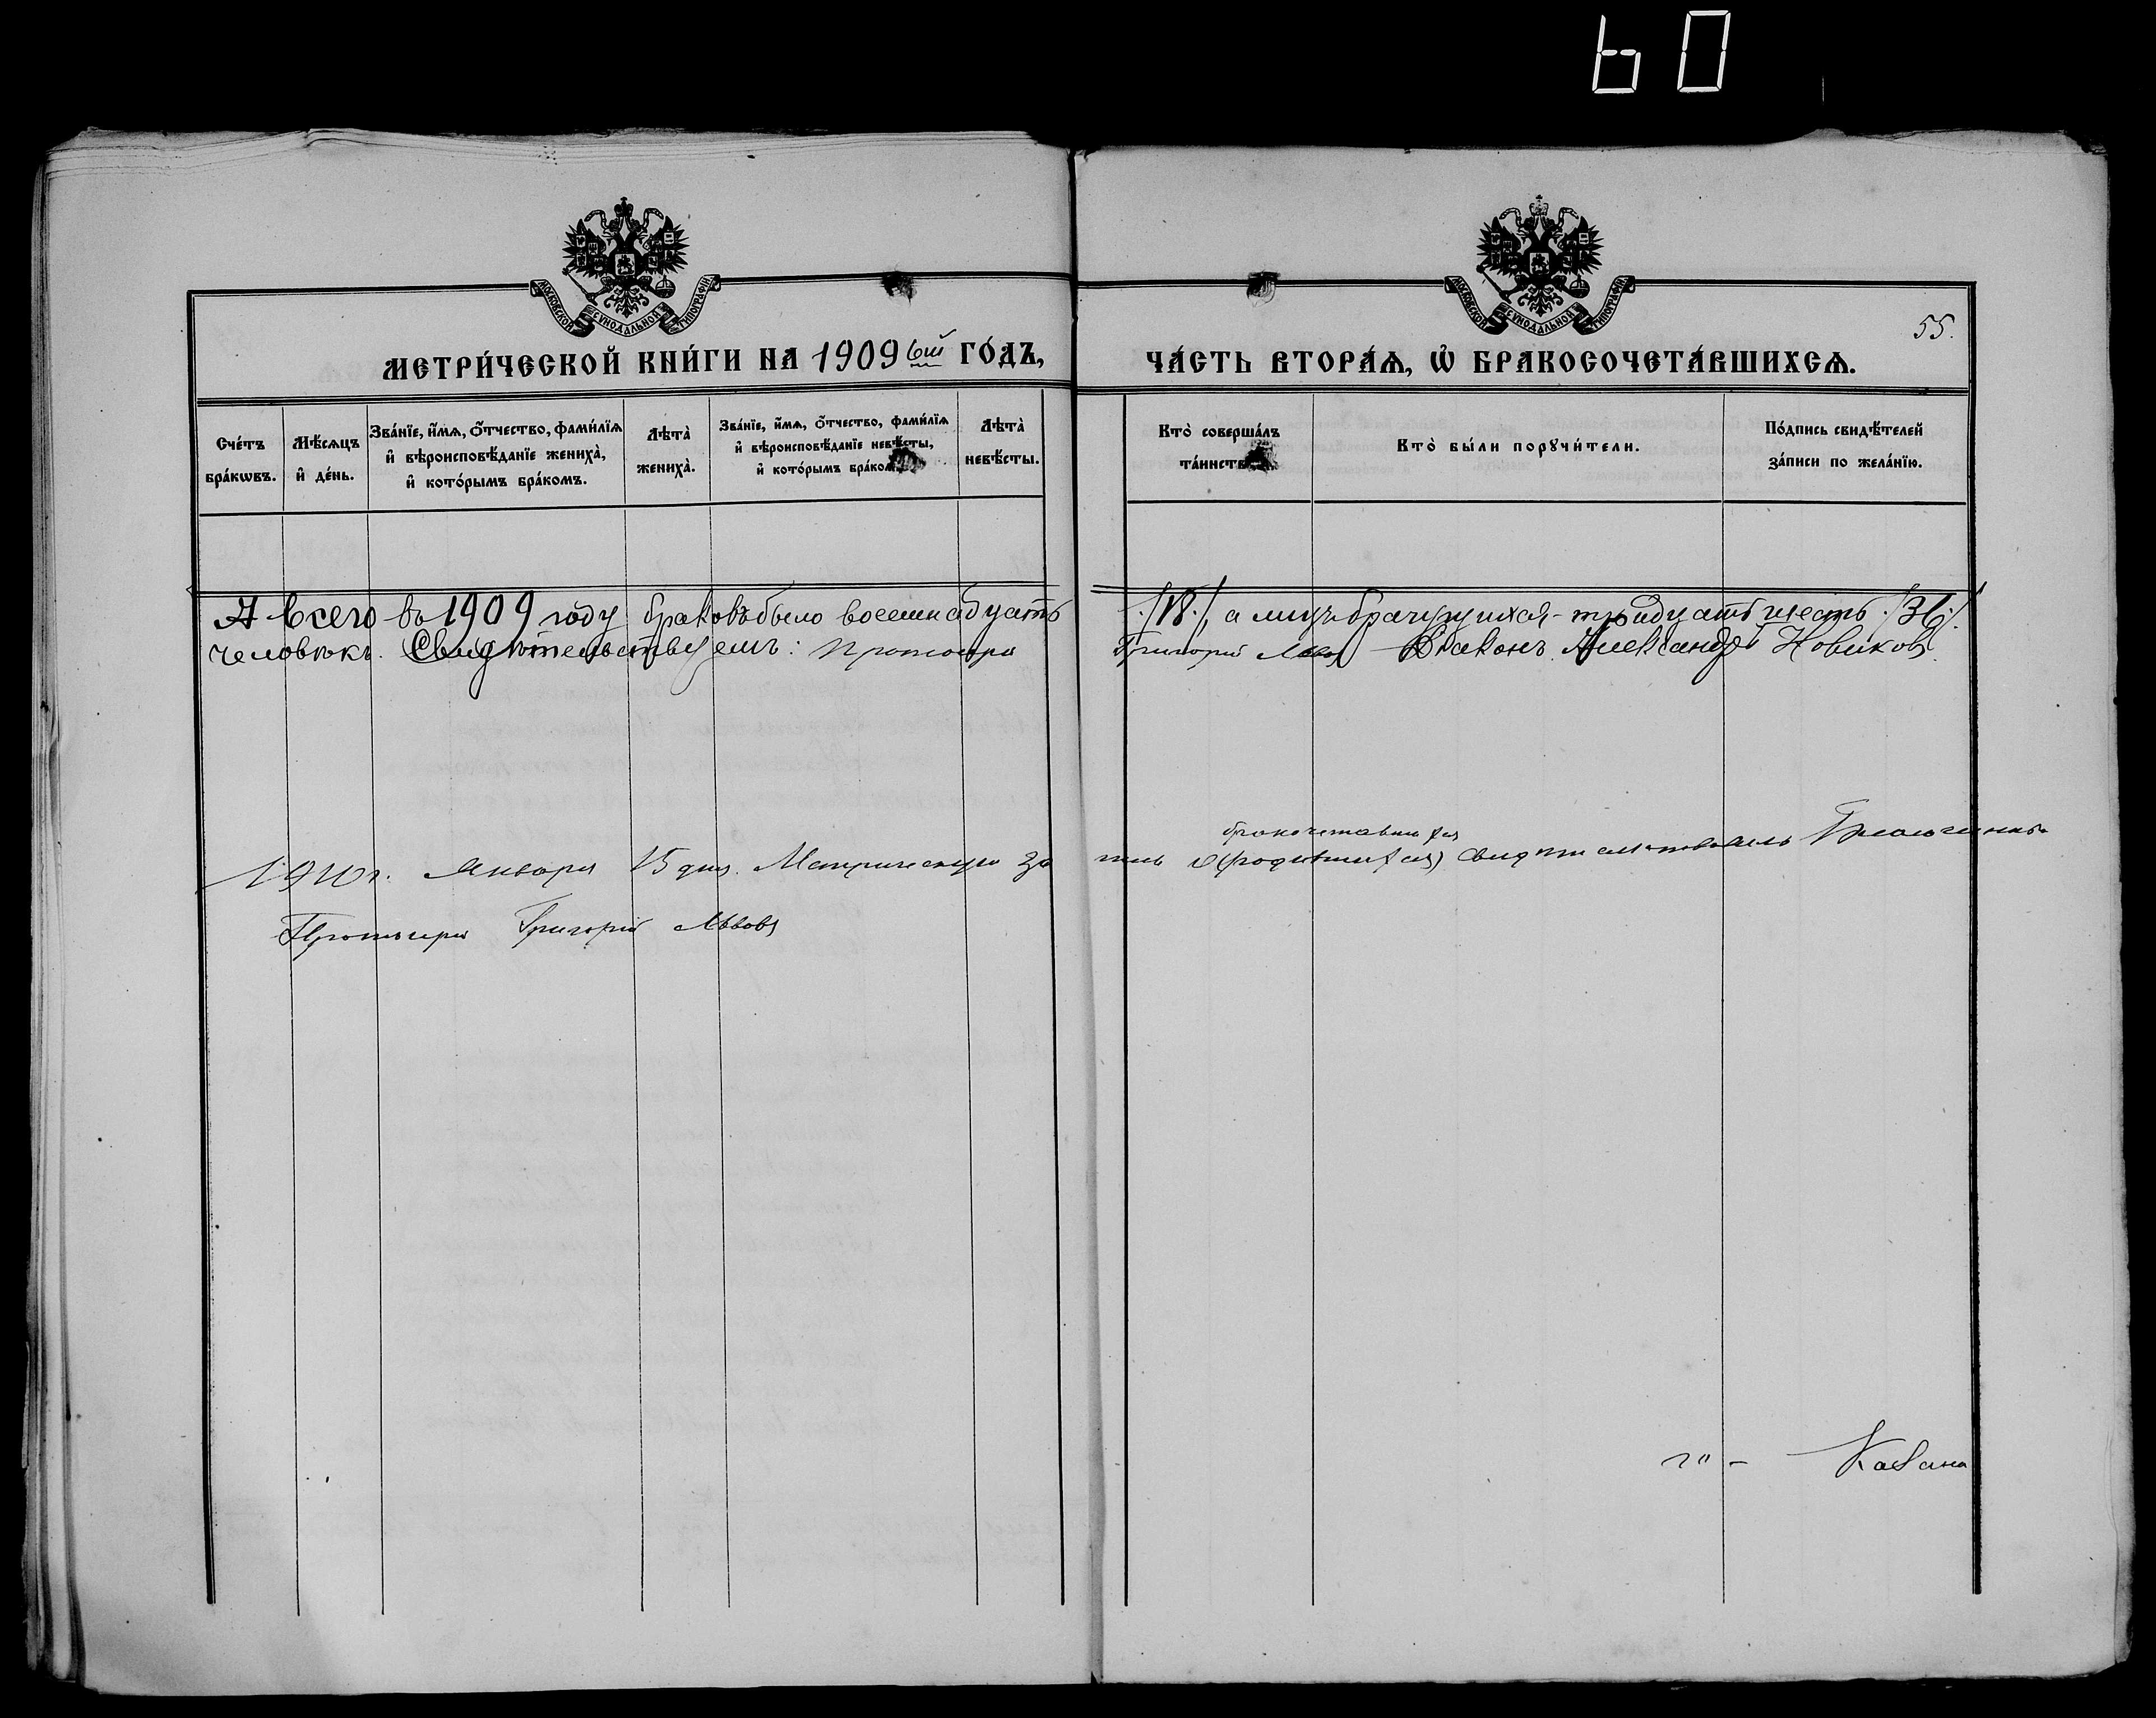 60
МОСКОВСКОЙ СѴНОДАЛЬНОЙ ТИПОГРАФІИ
МОСКОВСКОЙ СѴНОДАЛЬНОЙ ТИПОГРАФІИ
55.
МЕТРИ́ЧЕСКОЙ КНИ́ГИ НА 1909 ГО́ДЪ,
ЧА́СТЬ ВТОРА́Ѧ, Ѡ҆ БРАКОСОЧЕТА́ВШИХСѦ.
Сче́тъ бра́кѡвъ.
Мѣ́сѧцъ и҆ де́нь.
Зва́нїе, и҆́мѧ, ѻ҆́тчество, фами́лїѧ и҆ вѣроисповѣ́данїе жениха̀, и҆ кото́рымъ бра́комъ.
Лѣта̀ жениха̀.
Зва́нїе, и҆́мѧ, ѻ҆́тчество, фами́лїѧ и҆ вѣроисповѣ́данїе невѣ́сты, и҆ кото́рымъ бра́ком
Лѣта̀ невѣ́сты.
Кто̀ соверша́лъ та́инств
Кто̀ бы́ли порꙋчи́тели.
По́дпись свидѣ́телей за́писи по жела́нїю.
А всего въ 1909 году браковъ было восемнадцать ./18./, а лицъ брачущихся - тридцать шесть ./36./
человѣкъ. Свидѣтельствуемъ: Протоіерей Григорій Львовъ Діаконъ Александръ Новиковъ
бракочетавшихся
1910 г. Января 15 дня. Метрическую запись о (родившихся) свидетельствовалъ
Протоіерей Григорій Львовъ